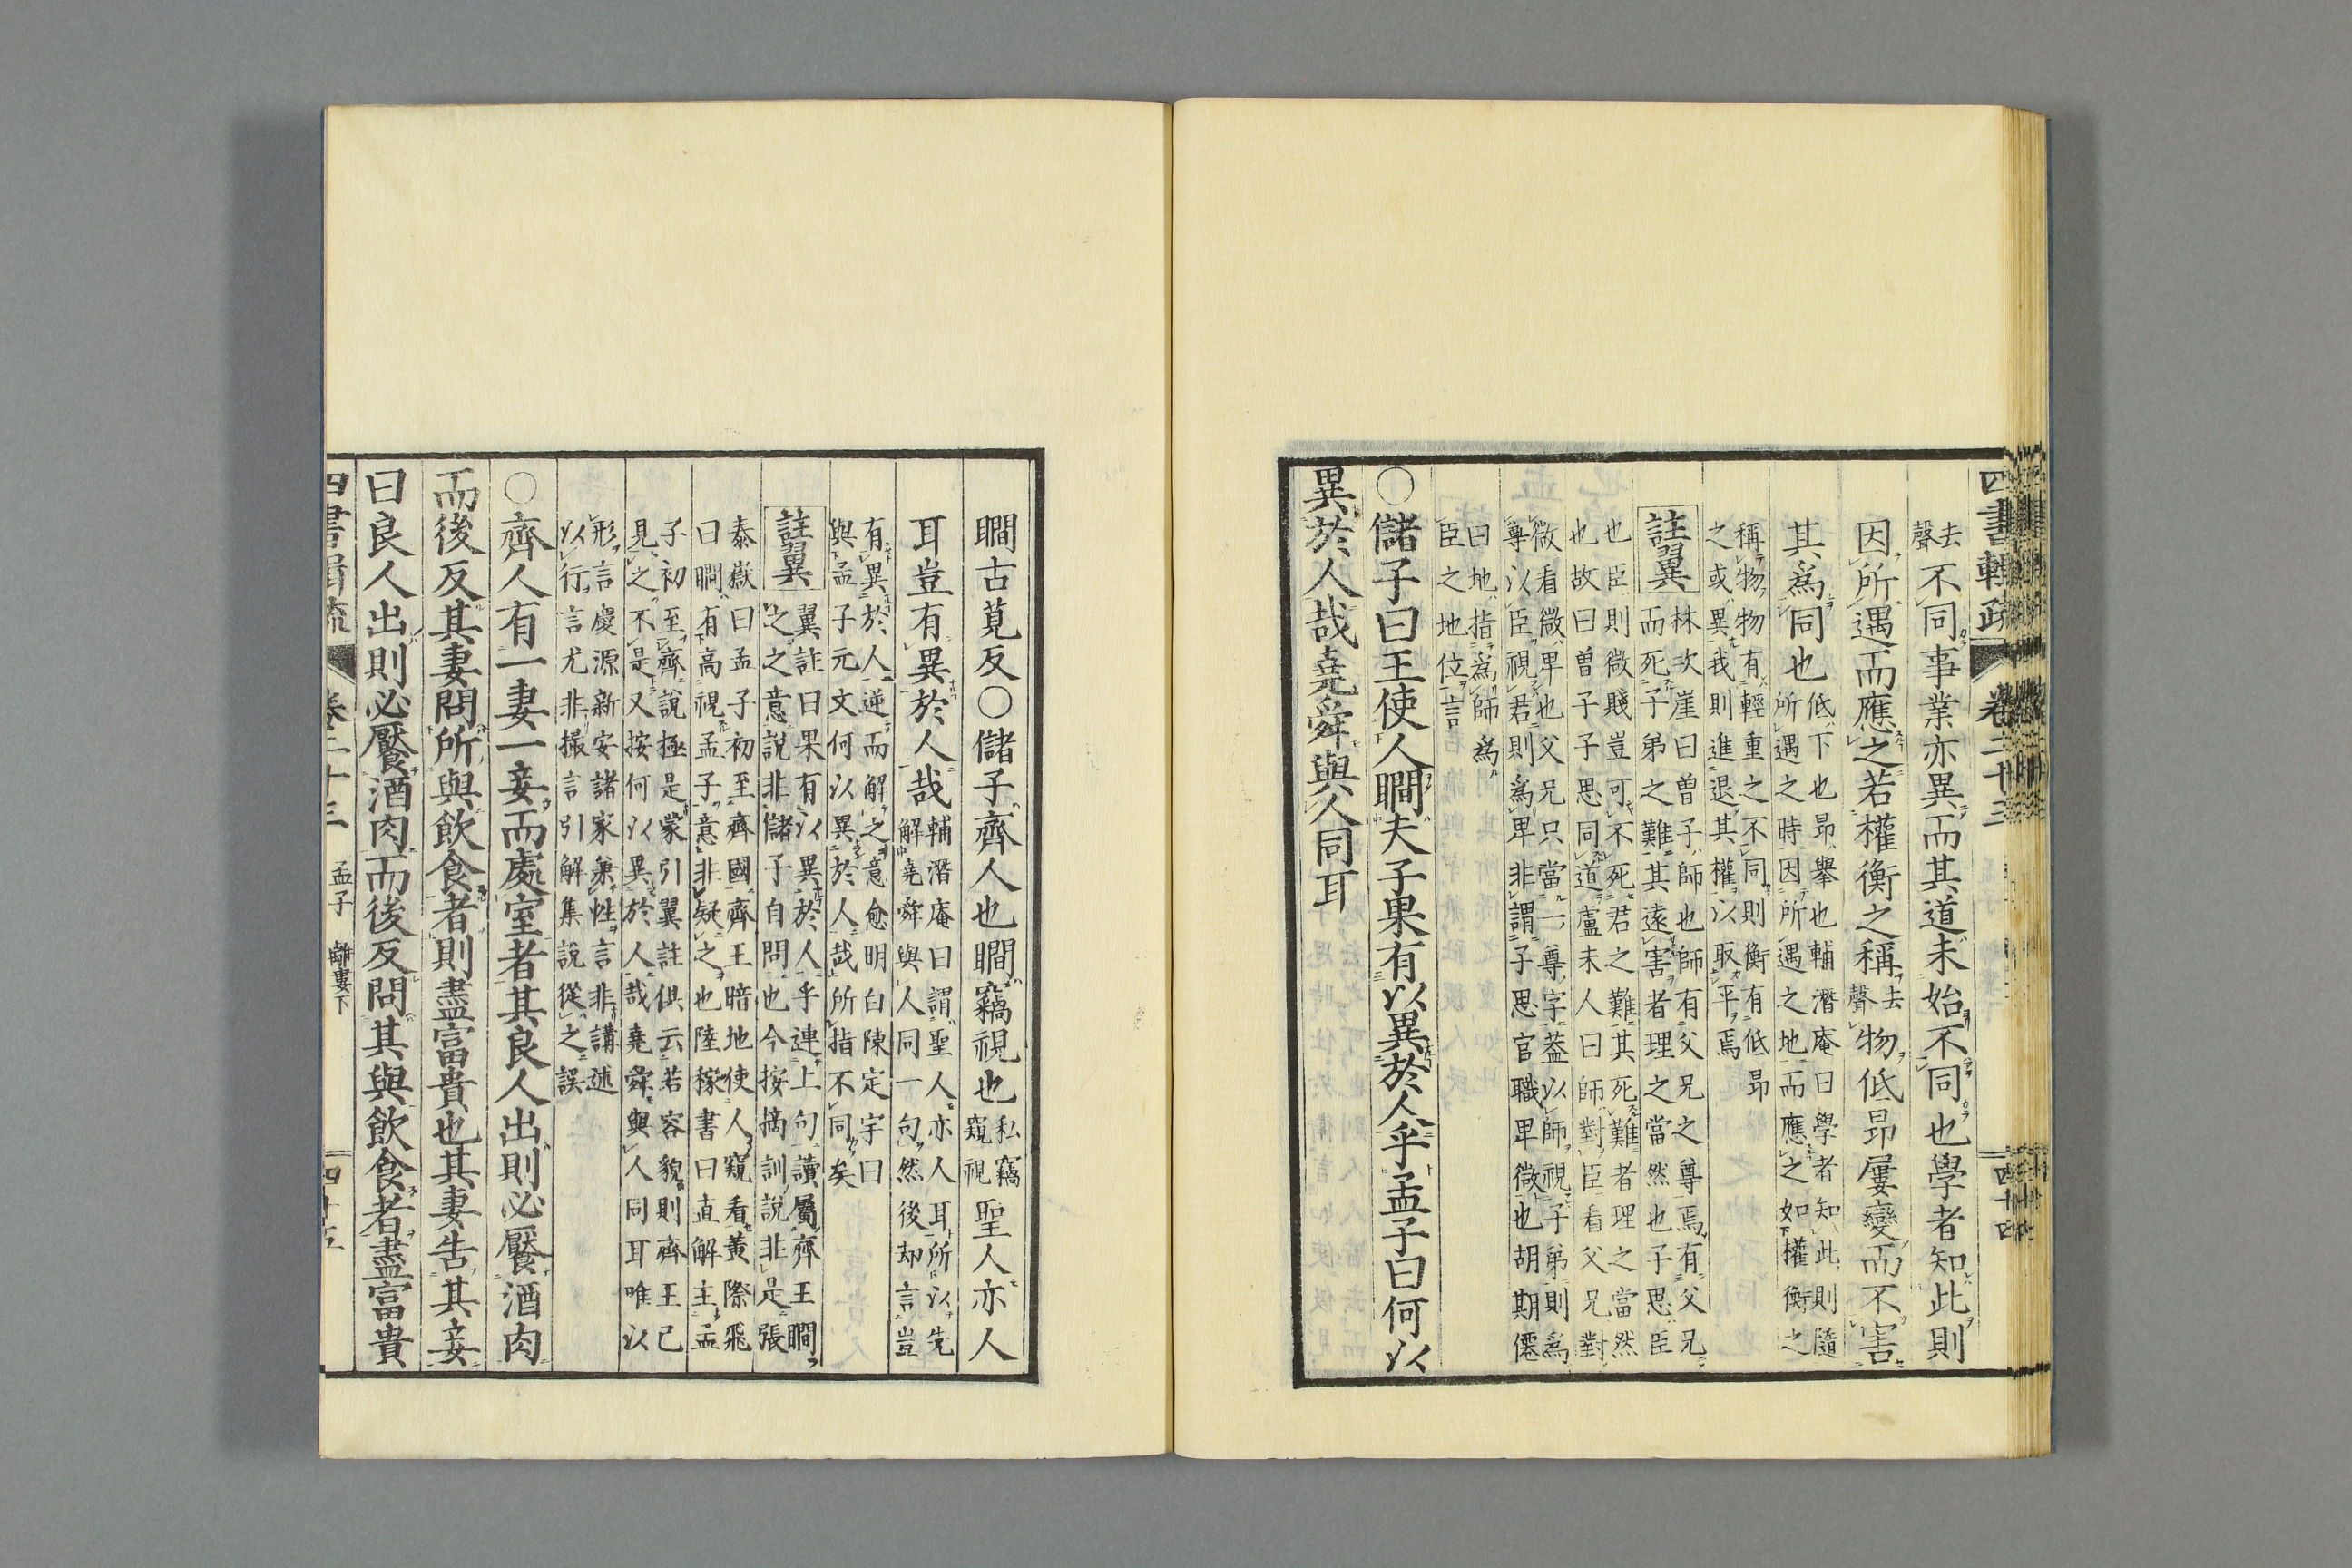 四書輯疏 卷二十三 四十四
去聲不同事業亦異而其道未始不同也學者知此則
因所遇而應之若權衡之稱去聲物低昂屢變而不害
其爲同也低下也昂擧也輔潛庵曰學者知此則隨
所遇之時因所遇之地而應之如權衡之
稱物物有輕重之不同則衡有低昂
之或異我則進退其權以取平焉
註翼
林次崖曰曽子師也師有父兄之尊焉有父兄
而死子弟之難其遠害者理之當然也子思臣
也臣則微賤豈可不死君之難其死難者理之當然
也故曰曽子子思同道盧未人曰師對臣看父兄對
微看微卑也父兄只當一尊字葢以師視子弟則爲
尊以臣視君則爲卑非謂子思官職卑微也胡期僊
曰地指爲師爲
臣之地位言
○儲子曰王使人瞷夫子果有以異於人乎孟子曰何以
異於人哉堯舜與人同耳
瞷古莧反○儲子齊人也瞷竊視也私竊窺視聖人亦人
耳豈有異於人哉輔潛庵曰謂聖人亦人耳所以先
解堯舜與人同一句然後却言豈
有異於人逆而解之意愈明白陳定宇曰
與孟子元文何以異於人哉所指不同矣
註翼
翼註曰果有以異於人乎連上句讀屬齊王瞷
之之意說非儲子自問也今按摘訓說非是張
泰嶽曰孟子初至齊國齊王暗地使人窺看黃際飛
曰瞷有高視孟子意非疑之也陸稼書曰直解主孟
子初至齊說極是蒙引翼註俱云若容貌則齊王已
見之不是又按何以異於人哉堯舜與人同耳唯以
形言慶源新安諸家兼性言非講述
以行言尤非撮言引解集說從之誤
○齊人有一妻一妾而處室者其良人出則必饜酒肉
而後反其妻問所與飲食者則盡富貴也其妻告其妾
曰良人出則必饜酒肉而後反問其與飲食者盡富貴
四書輯疏 卷二十三 孟子 離婁下 四十五